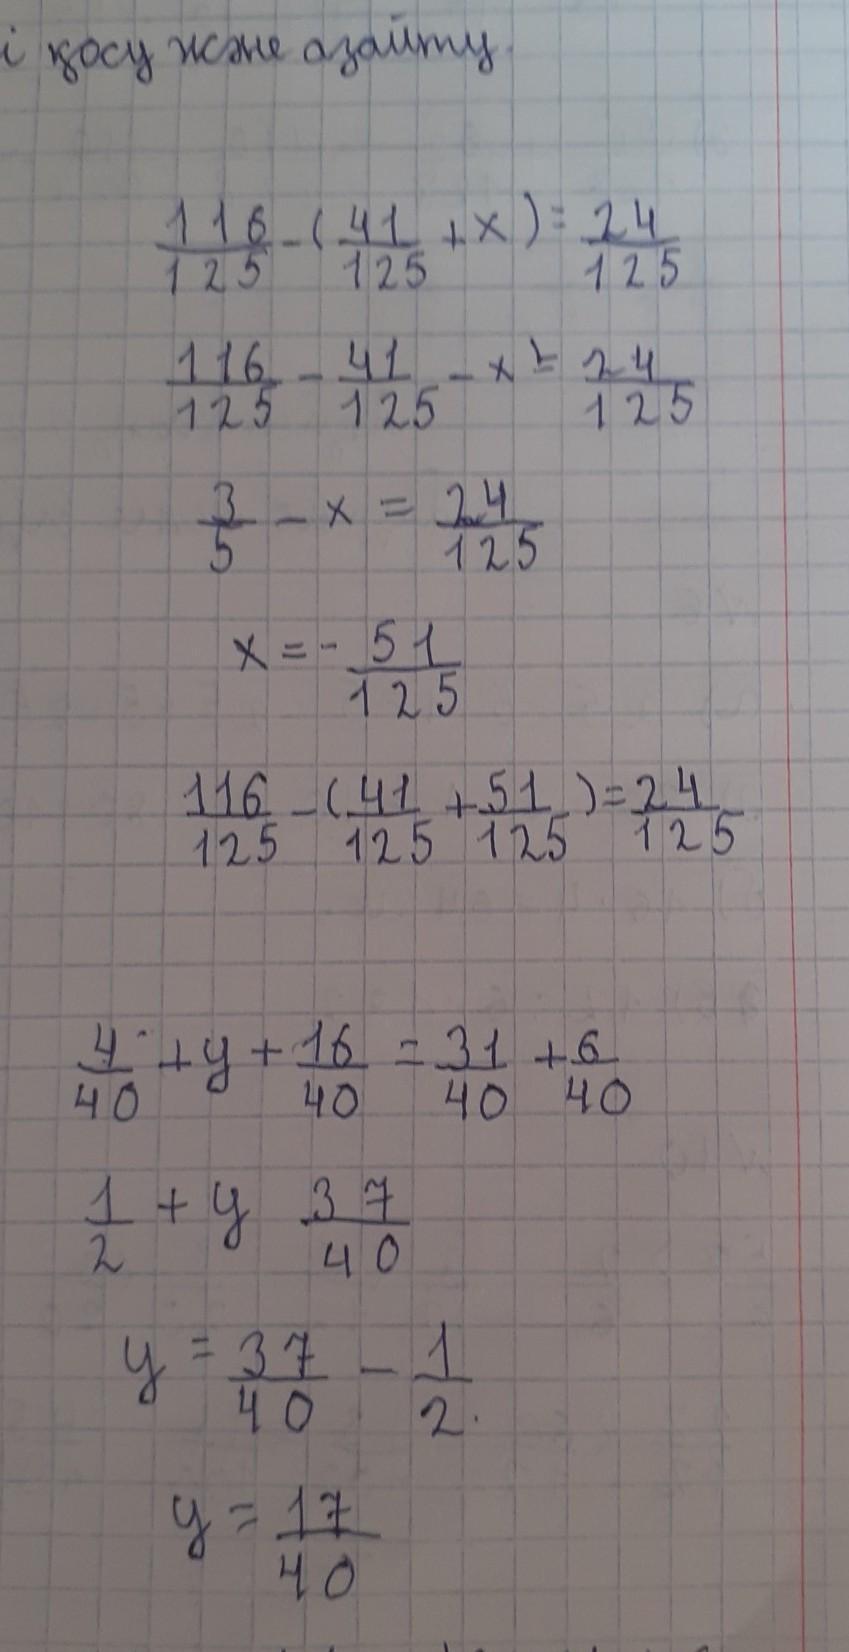 і қосу және азайту.
116/125 - (41/125 + x) = 24/125
116/125 - 41/125 - x = 24/125
3/5 - x = 24/125
x = - 51/125
116/125 - (41/125 + 51/125) = 24/125
4/40 + y + 16/40 = 31/40 + 6/40
1/2 + y 37/40
y = 37/40 - 1/2
y = 17/40